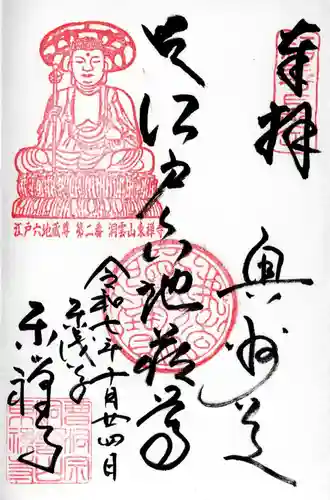 奉拝
奥州道
江戸六地蔵尊
江戸六地蔵尊 第二番 洞雲山東禅寺
令和七年十月廿四日
東浅草
東禅寺